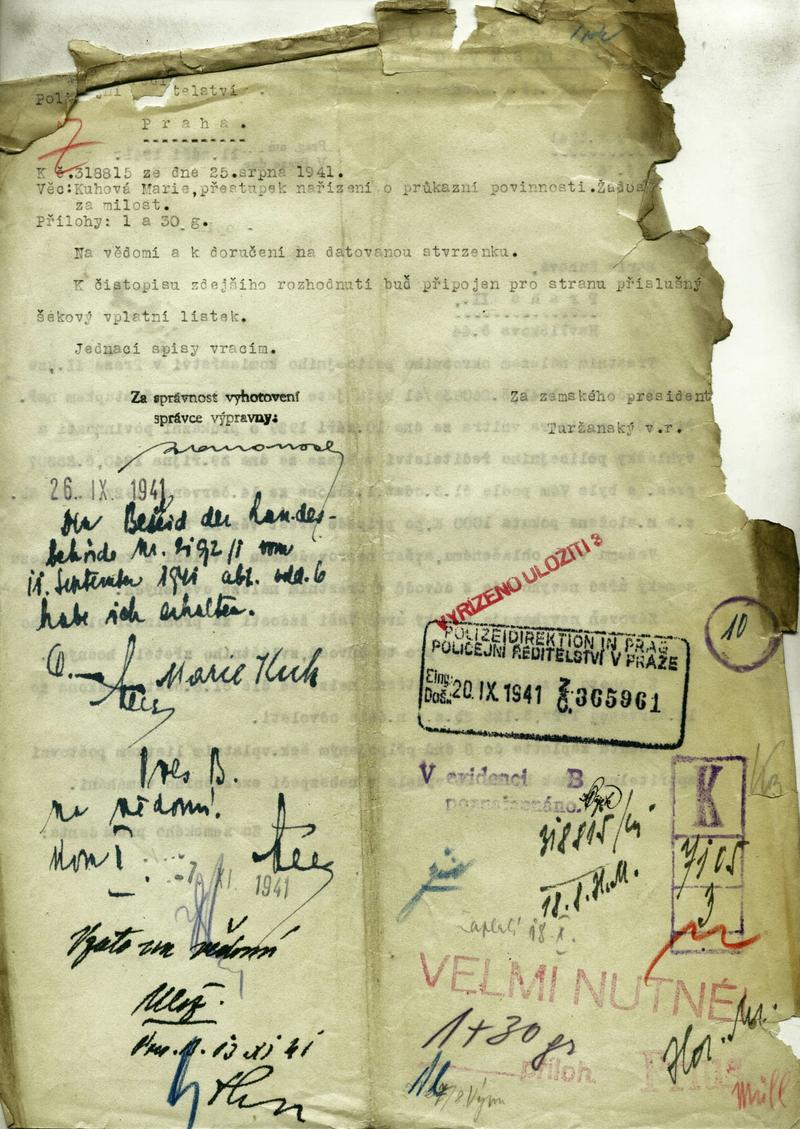 Policejní ředitelství
Praha.
K č.318815 ze dne 25.srpna 1941.
Věc:Kuhová Marie,přestupek nařízení o průkazní povinnosti.Žádost
za milost.
Přílohy: 1 a 30 g.
Na vědomí a k doručení na datovanou stvrzenku.
K čistopisu zdejšího rozhodnutí buď připojen pro stranu příslušný
šekový vplatní lístek.
Jednací spisy vracím.
Za správnost vyhotovení
správce výpravny:
Za zemského president
Turžanský v.r.
26. IX. 1941
Den Bescheid der Landes-
behörde Nr. 2192/1 vom
11. September 1941 abt. odd. 6
habe ich erhalten.
Marie Kuh
VYŘÍZENO ULOŽITI 3
10
POLIZEIDIREKTION IN PRAG
POLICEJNÍ ŘEDITELSTVÍ V PRAZE
Eing.
Doš. 20. IX. 1941 Z. Č. 365961
V evidenci B
poznamenáno.
318815/
18.8.
K
7105
3
Pres B.
na vědomí!
Kom I.
-7. XI. 1941
Zaplatí 18.X.
Vzato na vědomí
Ulož.
13 XI 41
VELMI NUTNÉ!
1+30 gr
příloh.